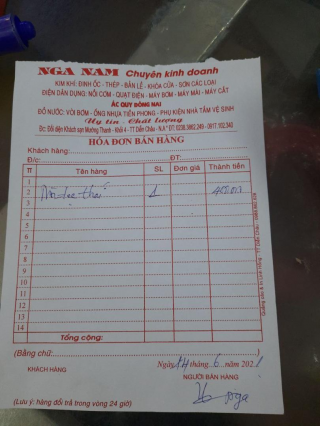 NGA NAM Chuyên kinh doanh
KIM KHÍ: ĐINH ỐC - THÉP - BẢN LỀ - KHÓA CỬA - SƠN CÁC LOẠI
ĐIỆN DÂN DỤNG: NỒI CƠM - QUẠT ĐIỆN - MÁY BƠM - MÁY MÀI - MÁY CẮT
ẮC QUY ĐỒNG NAI
ĐỒ NƯỚC: VÒI BƠM - ỐNG NHỰA TIỀN PHONG - PHỤ KIỆN NHÀ TẮM VỆ SINH
Uy tín - Chất lượng
Đc: Đối diện Khách sạn Mường Thanh - Khối 4 - TT Diễn Châu - N.A * ĐT: 0238.3862.249 - 0917.192.340
HÓA ĐƠN BÁN HÀNG
Khách hàng:
Đ/c: ĐT:
TT Tên hàng SL Đơn giá Thành tiền
1
2 1
3
4
5
6
7
8
9
10
11
12
13
14
Tổng cộng:
(Bằng chữ:
Ngày 14 tháng 6 năm 2021
KHÁCH HÀNG NGƯỜI BÁN HÀNG
Nga
(Lưu ý: hàng đổi trả trong vòng 24 giờ)